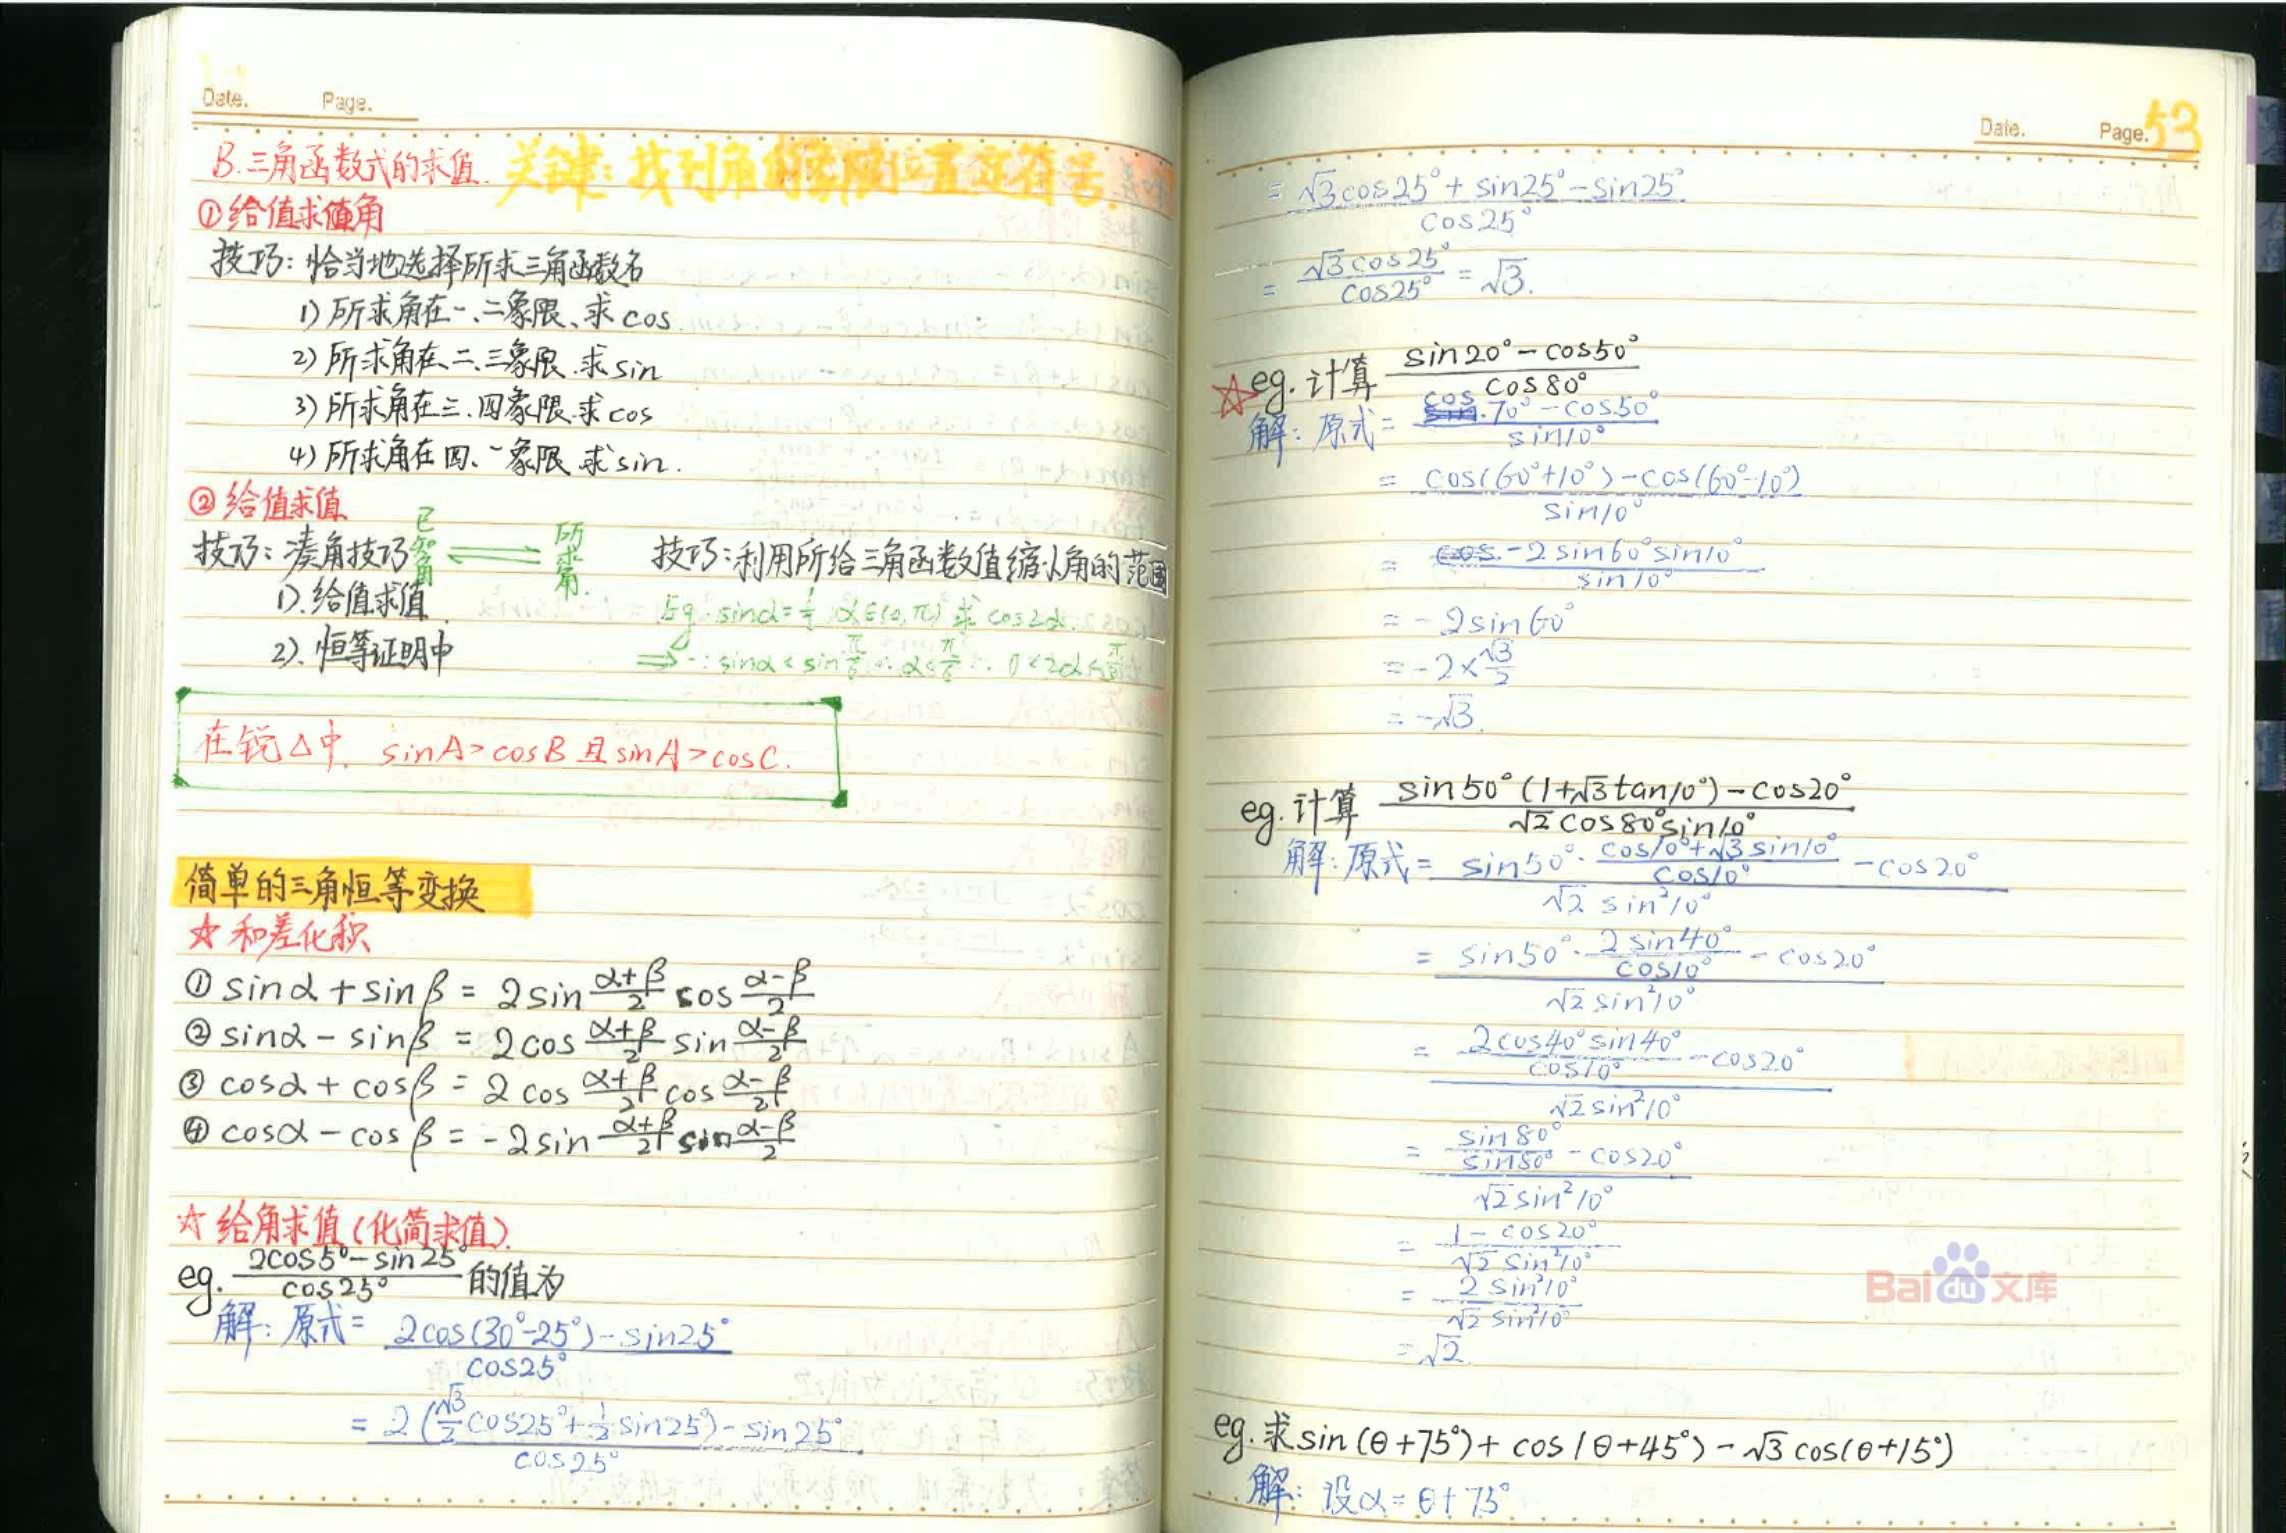 Date. Page.
B.三角函数式的求值. 关键:找到角的象限位置定符号.
①给值求角
技巧:恰当地选择所求三角函数名
1)所求角在一、二象限、求cos
2)所求角在二、三象限.求sin
3)所求角在三、四象限.求cos
4)所求角在四、一象限.求sin.
②给值求值
技巧:凑角技巧 已知角 ⇌ 所求角. 技巧:利用所给三角函数值缩小角的范围
1).给值求值
Eg.sinα= α∈(0,π) 求 cos2α.
2).恒等证明中
⇒∵sinα<sinπ/6 ∴α<π/6 ∴0<2α<
在锐△中. sinA>cosB且sinA>cosC.
简单的三角恒等变换
☆和差化积
①sinα+sinβ = 2sin (α+β)/2 cos (α-β)/2
②sinα-sinβ = 2cos (α+β)/2 sin (α-β)/2
③cosα+cosβ = 2cos (α+β)/2 cos (α-β)/2
④cosα-cosβ = -2sin (α+β)/2 sin (α-β)/2
☆给角求值(化简求值)
eg. (2cos5°-sin25°)/cos25° 的值为
解:原式= (2cos(30°-25°)-sin25°)/cos25°
= (2(√3/2 cos25°+1/2 sin25°)-sin25°)/cos25°
Date. Page. 53
= (√3cos25°+sin25°-sin25°)/cos25°
= √3cos25°/cos25° = √3.
☆eg.计算 (sin20°-cos50°)/cos80°
解:原式= (cos70°-cos50°)/sin10°
= (cos(60°+10°)-cos(60°-10°))/sin10°
= -2sin60°sin10°/sin10°
= -2sin60°
= -2×√3/2
= -√3.
eg.计算 (sin50°(1+√3tan10°)-cos20°)/(√2cos80°sin10°)
解:原式= (sin50°·(cos10°+√3sin10°)/cos10° -cos20°)/(√2sin²10°)
= (sin50°·2sin40°/cos10° -cos20°)/(√2sin²10°)
= (2cos40°sin40°/cos10° -cos20°)/(√2sin²10°)
= (sin80°/sin80° -cos20°)/(√2sin²10°)
= (1-cos20°)/(√2sin²10°)
= 2sin²10°/(√2sin²10°)
= √2.
Baidu文库
eg.求sin(θ+75°)+cos(θ+45°)-√3cos(θ+15°)
解:设α=θ+75°